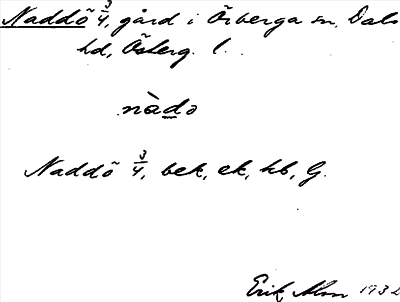 Naddö 3/4, gård i Örberga sn, Dals
hd, Österg. l.
nàdə
Naddö 3/4, bek, ek, hb, G.
Erik Alm 1932